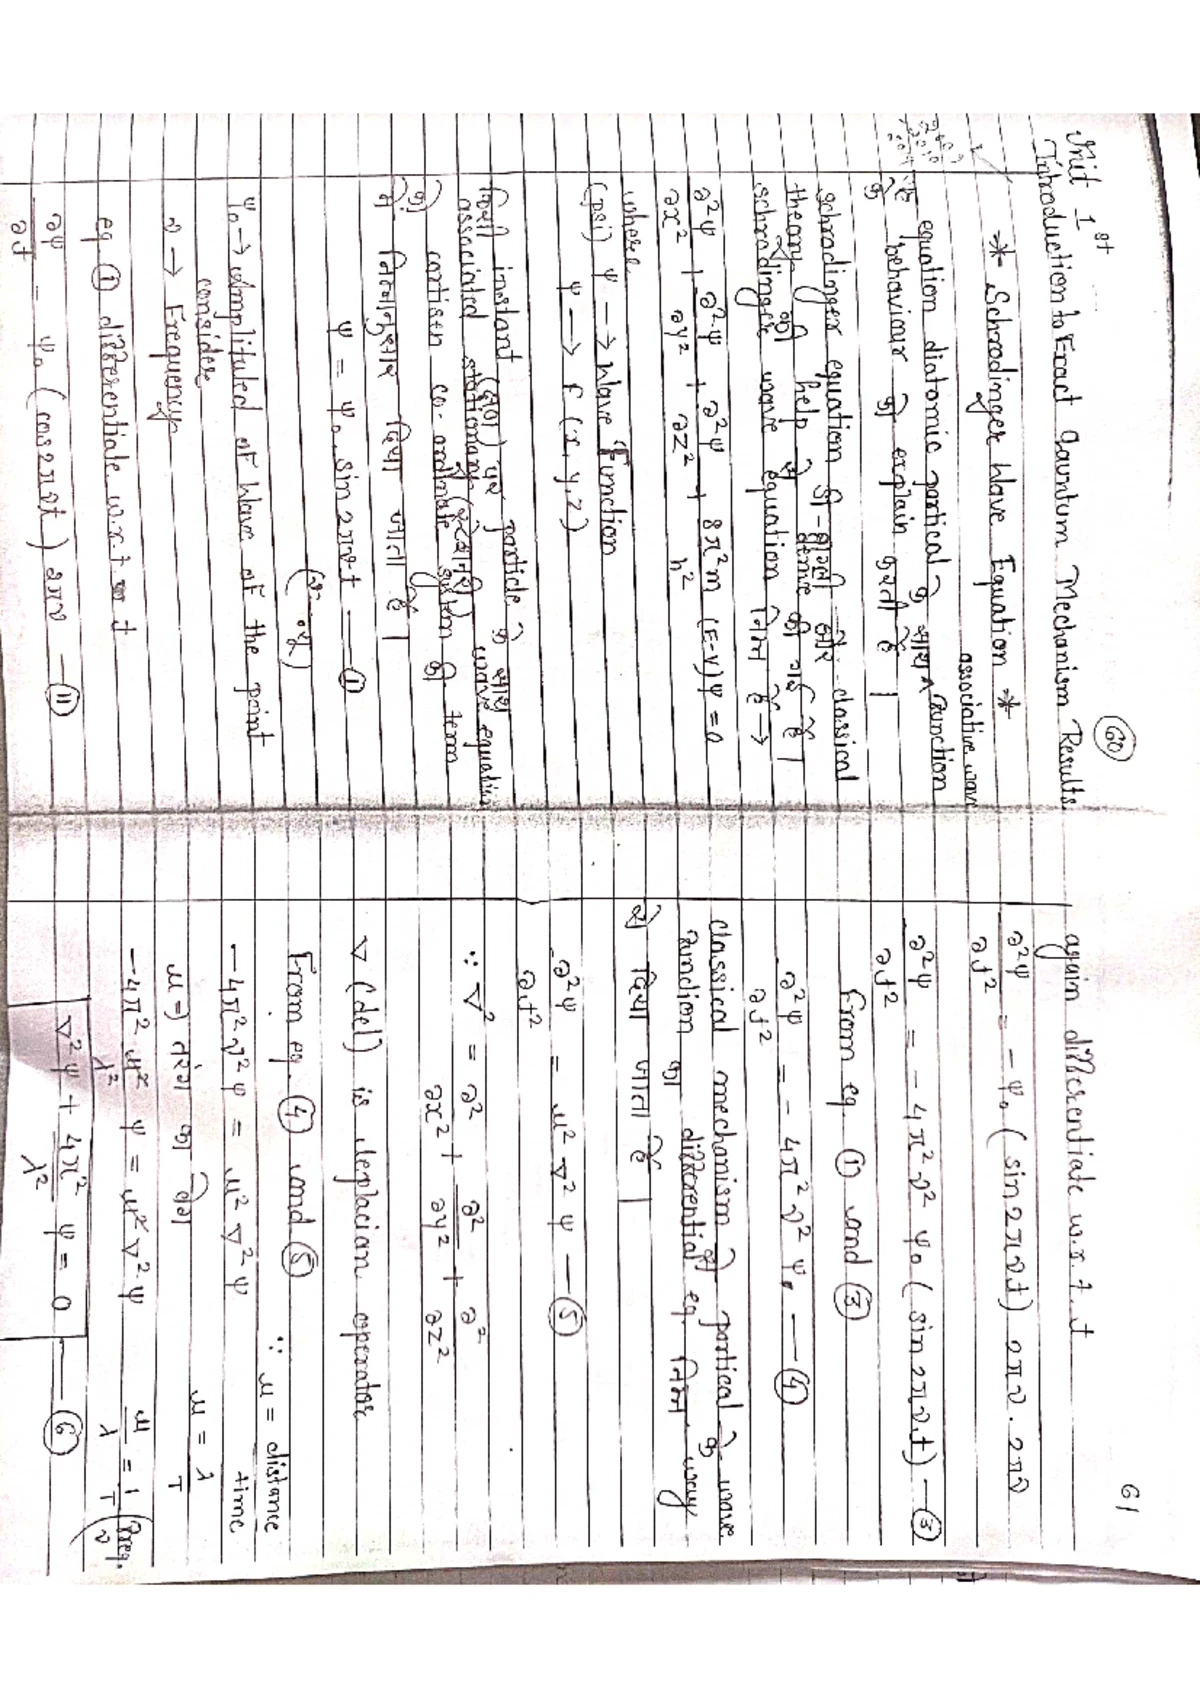 60
Unit 1st
Introduction to Exact Qauntum Mechanism Results
* Schrodinger Wave Equation *
associative wave
यह equation diatomic partical के साथ ^ function
के behaviour को explain करती है |
schrodinger equation classical
theory की help से derive की गई है |
schrodinger wave equation निम्न है →
∂²ψ/∂x² + ∂²ψ/∂y² + ∂²ψ/∂z² + 8π²m/h² (E-V)ψ = 0
where
(psi) ψ → Wave Function
ψ → f (x, y, z)
किसी instant (क्षण) पर particle के साथ
associated stationary wave equation
को cartisen co-ordinate system की term
में निम्नानुसार दिया जाता है |
ψ = ψ₀ sin 2πνt — ①
ψ₀ → Amplituled of Wave at the point
consider
ν → Frequency
eq ① differentiate w.r.t t
∂ψ/∂t = ψ₀ (cos2πνt) 2πν — ⑪
61
again differentiate w.r.t. t
∂²ψ/∂t² = - ψ₀ (sin 2πνt) 2πν . 2πν
∂²ψ/∂t² = - 4π²ν² ψ₀ (sin 2πνt) — ③
From eq. ① and ③
∂²ψ/∂t² = - 4π²ν² ψ₀ — ④
classical mechanism में partical के wave
function का differential eq. निम्न way
से दिया जाता है |
∂²ψ/∂t² = u² ∇² ψ — ⑤
∵ ∇² = ∂²/∂x² + ∂²/∂y² + ∂²/∂z²
∇ (del) is leplacian operator
From eq. ④ and ⑤
∵ u = distance/time
- 4π²ν²ψ = u² ∇²ψ
u = λ/T
u → तरंग का वेग
- 4π² u²/λ² ψ = u² ∇²ψ
u/λ = 1/T (freq. ν)
∇²ψ + 4π²/λ² ψ = 0 — ⑥